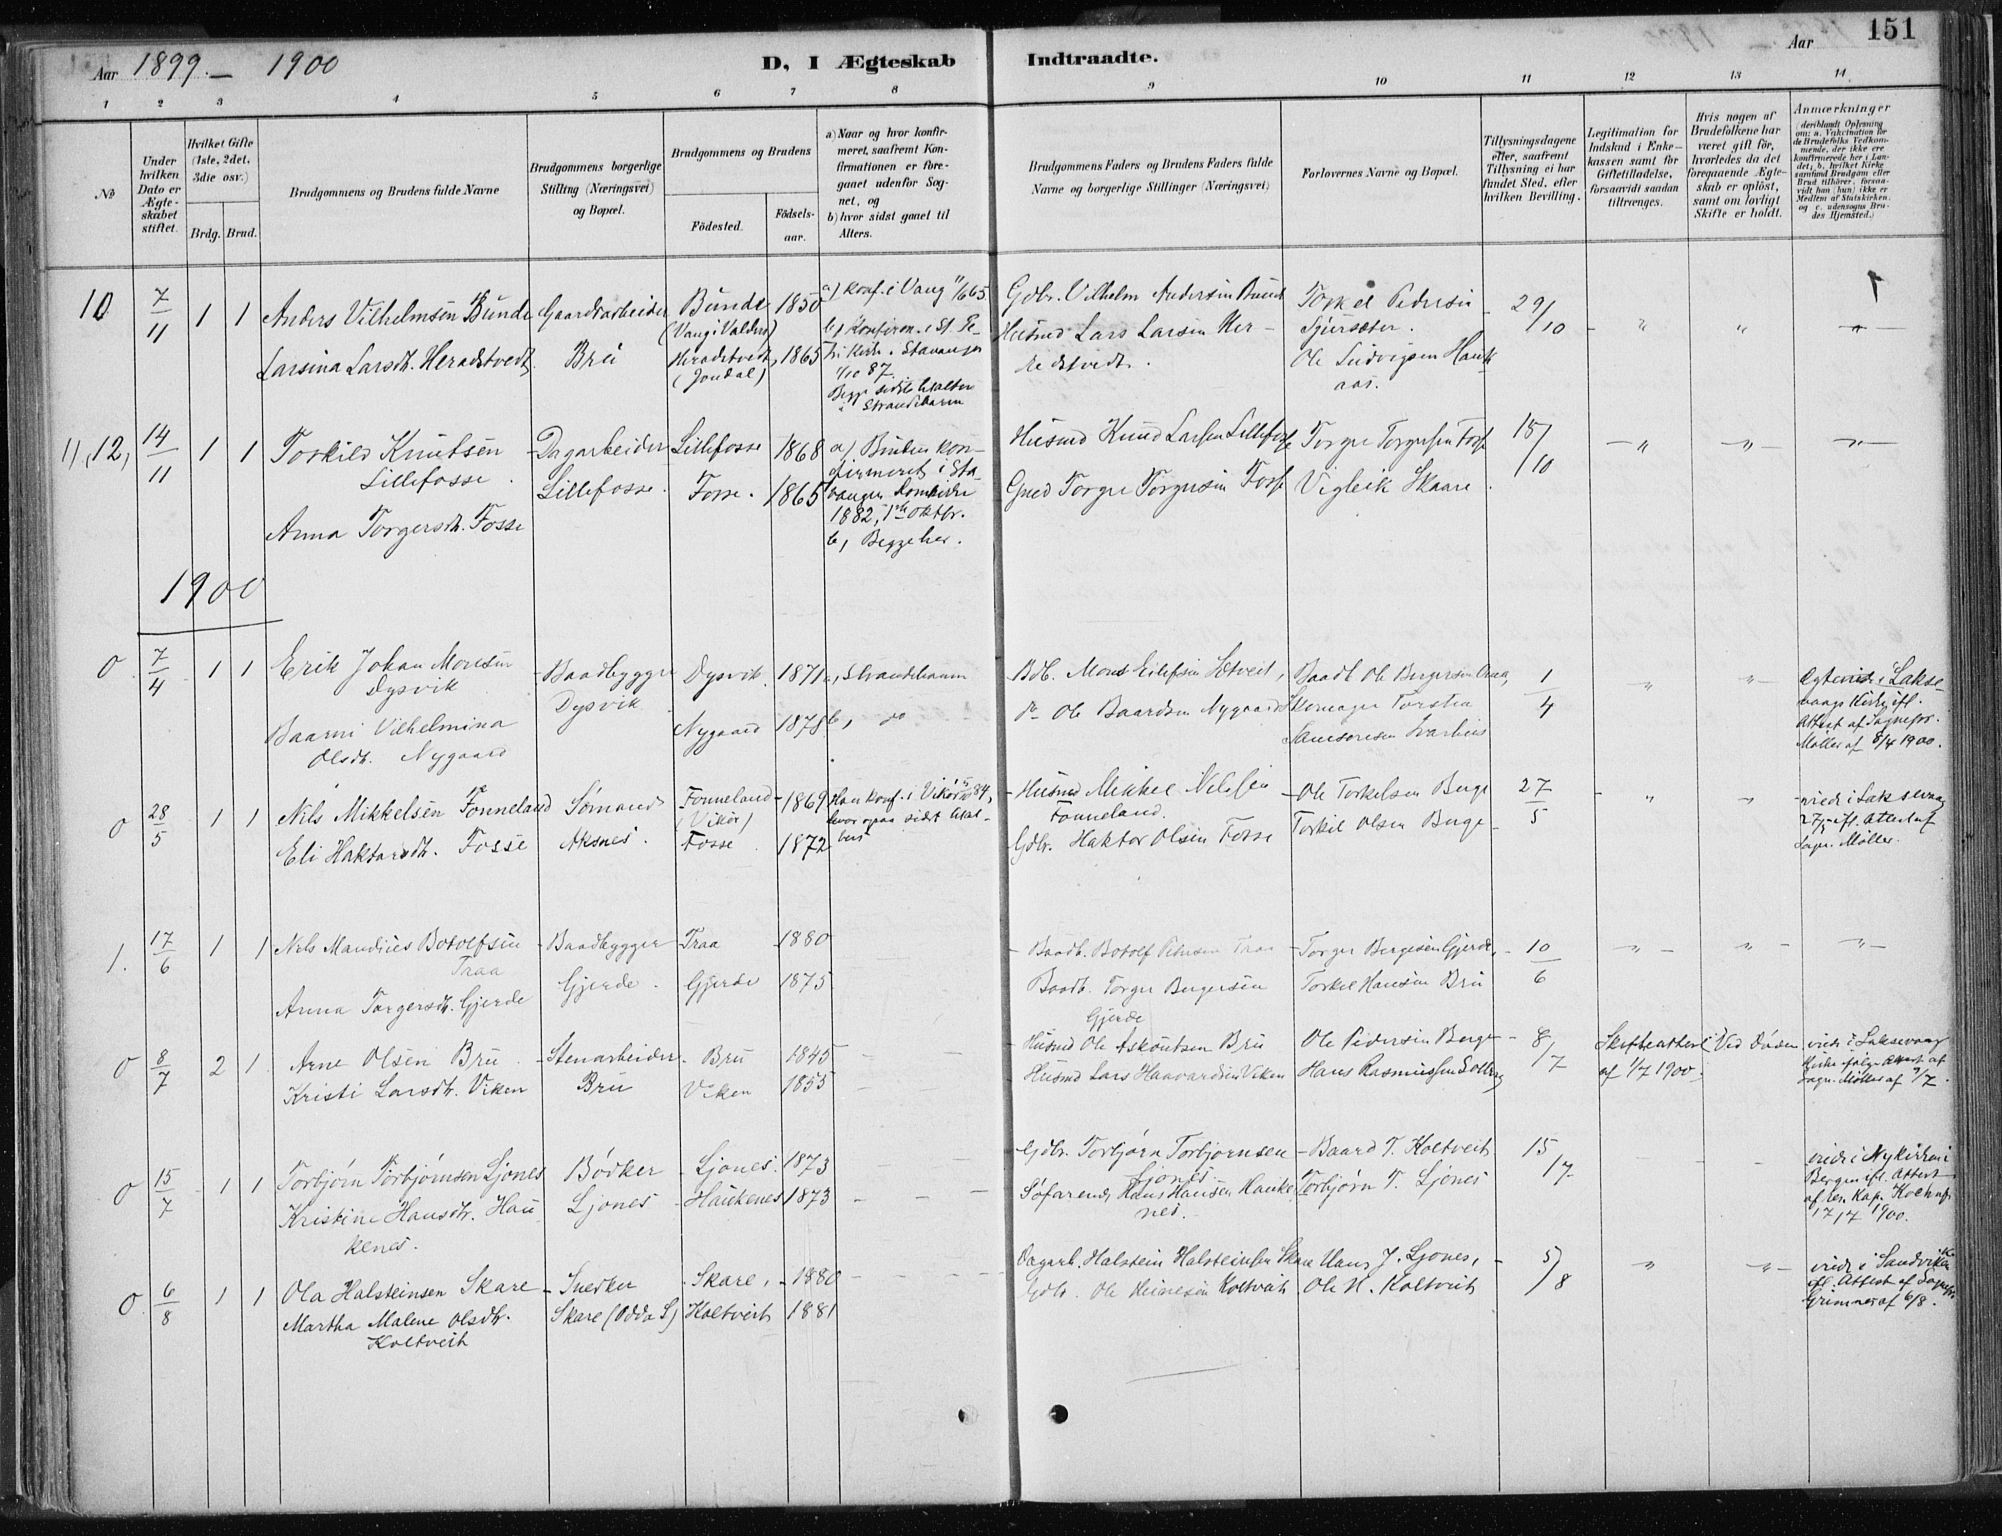 151
Aar 1899. — 1900
D, I Ægteskab Indtraadte.
Aar
1 2 3 4 5 6 7 8 9 10 11 12 13 14
№
Under hvilken Dato er Ægteskabet stiftet.
Hvilket Gifte (1ste, 2det, 3die osv.)
Brdg. Brud.
Brudgommens og Brudens fulde Navne
Brudgommens borgerlige Stilling (Næringsvei) og Bopæl.
Brudgommens og Brudens
Födested.
Födselsaar.
a) Naar og hvor konfirmeret, saafremt Konfirmationen er foregaaet udenfor Sognet, og
b) hvor sidst gaaet til Alters.
Brudgommens Faders og Brudens Faders fulde Navne og borgerlige Stillinger (Næringsvei)
Forlovernes Navne og Bopæl.
Tillysningsdagene eller, saafremt Tillysning ei har fundet Sted, efter hvilken Bevilling.
Legitimation for Indskud i Enkekassen samt for Giftetilladelse, forsaavidt saadan tiltrænges.
Hvis nogen af Brudefolkene har været gift för, hvorledes da det foregaaende Ægteskab er oplöst, samt om lovligt Skifte er holdt.
Anmærkninger
(deriblandt Oplysning om: a. Vakcination for de Brudefolks Vedkommende, der ikke ere konfirmerede her i Landet; b. hvilket Kirkesamfund Brudgom eller Brud tilhörer, forsaavidt han (hun) ikke er Medlem af Statskirken. og c. udensogns Brudes Hjemsted.)
10 7/11 1 1 Anders Vilhelmsen Bunde Gaardarbeider Bunde 1850 a) konf. i Vang 11/6 65 Gdbr. Vilhelm Andersen Bunde Torkel Pedersen 29/10
(Vang i Valders) b, Konfirm. i St. Pe-
Larsina Larsdtr. Heradstvedt Bru Heradstvedt 1865 tri Kirke i Stavanger Husmd Lars Larsen Her- Tjersæter.
(Jondal) 1/10 87. adstvedt. Ole Ludvigsen Hauk-
Begge sidste Alter aas.
i Strandebarm
11, 12, 14/11 1 1 Torkild Knutsen Dagarbeider Lillefosse 1868 a) Bruden kon- Husmd Knud Larsen Lillefosse Torger Torgersen Fosse 15/10
Lillefosse. Lillefosse. Fosse. 1865 firmeret i Sta- Gmd Torger Torgersen Fosse Vigleik Skaare.
vanger Domkirke
Anna Torgersdtr. Fosse 1882, 1ste Oktbr.
b, Begge her.
1900
0 7/4 1 1 Erik Johan Monsen Baadbygger Dysvik 1871 a, Strandebarm Bdb. Mons Eilefsen Tætveit, Baadb Ole Bergesen Traa, 1/4 Egteviede i Lakse-
Dysvik Dysvik vaags Kirke ifl.
Baarni Vilhelmina Nygaard 1878 b, do do Ole Baardsen Nygaard Skomager Torsten Attest af Sognepr.
Olsdtr. Nygaard Samsonsen Svarhus Möller af 8/4 1900.
0 28/5 1 1 Nils Mikkelsen Fonneland Sømand Fonneland 1869 Han konf. i Vikör 84, Husmd Mikkel Nilssen Ole Torkelsen Berge 27/5 viede i Laksevaag
(Vikör) hvor ogsaa sidst til Al- Fonneland. 27/5 ifl. Attest af
Eli Haktorsdtr. Fosse Aksnes. Fosse 1872 ters Gdbr. Haktor Olsen Fosse Torkil Olsen Berge Sogn. Möller.
1. 17/6 1 1 Nils Mandius Botolfsen Baadbygger Traa 1880 Baadb. Botolf Petersen Traa Torger Bergesen Gjerde, 10/6
Traa
Anna Torgersdtr. Gjerde Gjerde. Gjerde 1875 Baadb. Torger Bergesen Torkel Hansen Bru
Gjerde
0 8/7 2 1 Arne Olsen Bru Stenarbeider Bru 1845 Husmd Ole Askoutsen Bru Ole Pedersen Berge 8/7 Skifteattest Ved Døden viede i Laksevaag
Kristi Larsdtr. Viken Bru Viken 1855 Husmd Lars Haavardsen Viken Hans Rasmussen Solberg af 1/7 1900 Kirke ifölge Attest af
Sogn. Möller af 9/7.
0 15/7 1 1 Torbjørn Torbjørnsen Ljones Bödker Ljones 1873 Gdbr. Torbjørn Torbjørnsen Baard T. Koltveit 15/7 viede i Nykirken i
Ljones Bergen ifl. Attest
Kristine Hansdtr. Hau- Ljones Haukenes 1873 Söfarende Hans Hansen Hauke- Torbjørn T. Ljones af res. Kap. Koch af
kenes. nes. 17/7 1900.
0 6/8 1 1 Ola Halsteinsen Skare Snedker Skare 1880 Dagarb. Halstein Halsteinsen Skare Hans J. Ljones, 5/8 viede i Sandviken
Martha Malene Olsdtr. Skare (Odda S) Koltveit 1881 Gdbr. Ole Heinesen Koltveit Ole N. Koltveit ifl. Attest af Sognepr.
Koltveit Grimnes af 6/8.